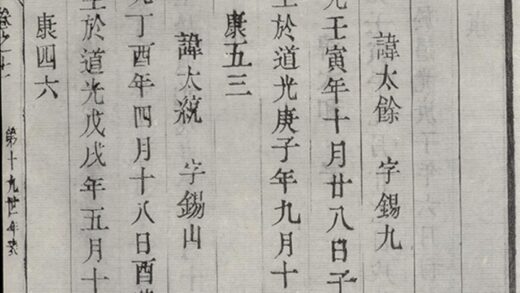 諱太餘 字錫九
壬寅年十月廿八日子
於道光庚子年九月十
康五三
諱太統 字錫山
丁酉年四月十八日酉
於道光戊戌年五月十
康四六
第十九世年表